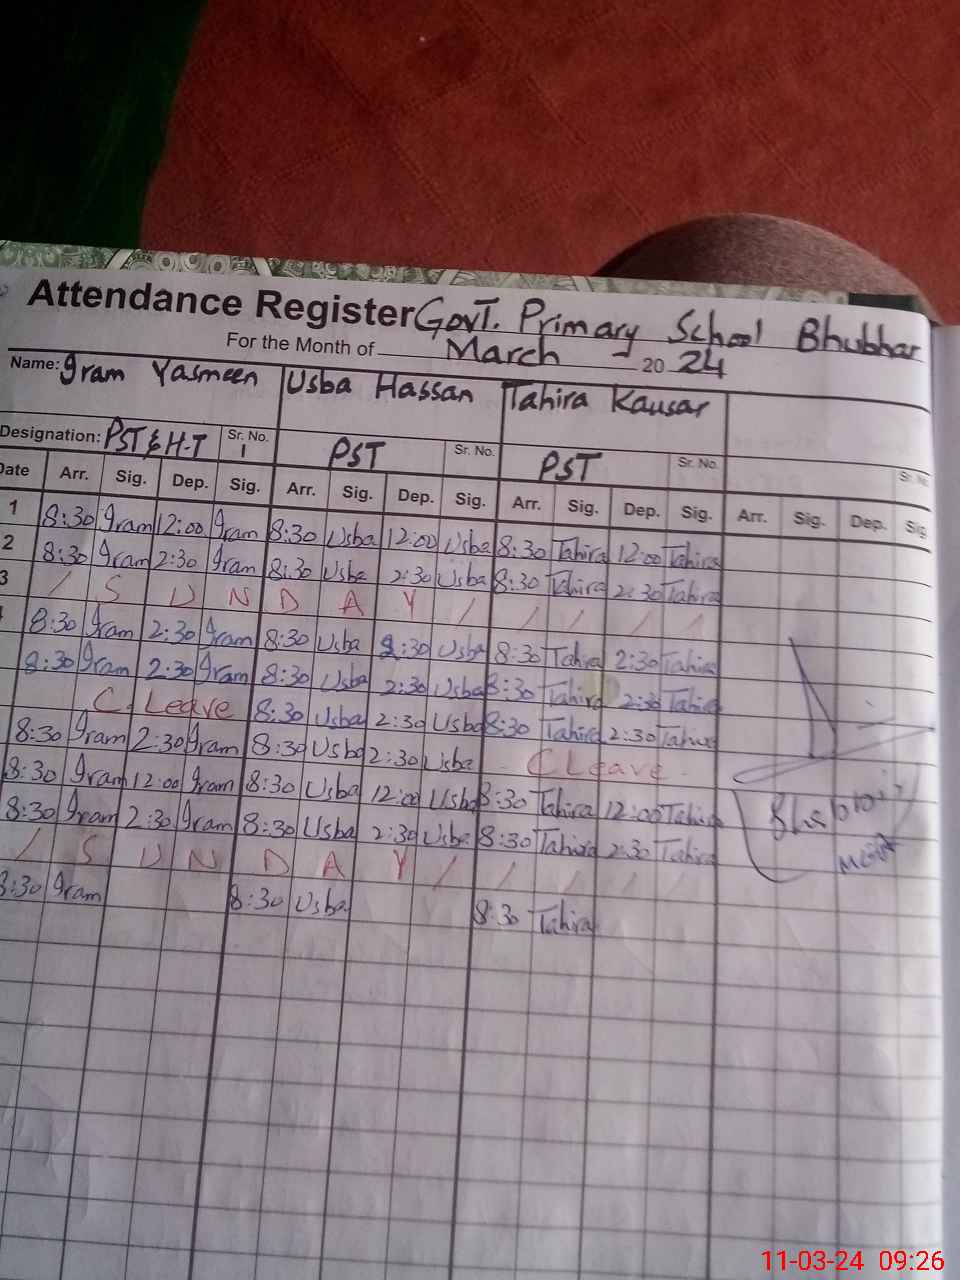 Attendance Register Govt. Primary School Bhubhar
For the Month of March - 2024
Name: Iram Yasmeen Usba Hassan Tahira Kausar
Designation: PST & H-T Sr. No. 1 PST Sr. No. PST Sr. No. Sr. No.
Date Arr. Sig. Dep. Sig. Arr. Sig. Dep. Sig. Arr. Sig. Dep. Sig. Arr. Sig. Dep. Sig.
1 8:30 Iram 12:00 Iram 8:30 Usba 12:00 Usba 8:30 Tahira 12:00 Tahira
2 8:30 Iram 2:30 Iram 8:30 Usba 2:30 Usba 8:30 Tahira 2:30 Tahira
3 / S U N D A Y / / / / /
8:30 Iram 2:30 Iram 8:30 Usba 2:30 Usba 8:30 Tahira 2:30 Tahira
8:30 Iram 2:30 Iram 8:30 Usba 2:30 Usba 8:30 Tahira 2:30 Tahira
C. Leave 8:30 Usba 2:30 Usba 8:30 Tahira 2:30 Tahira
8:30 Iram 2:30 Iram 8:30 Usba 2:30 Usba C Leave
8:30 Iram 12:00 Iram 8:30 Usba 12:00 Usba 8:30 Tahira 12:00 Tahira
8:30 Iram 2:30 Iram 8:30 Usba 2:30 Usba 8:30 Tahira 2:30 Tahira
/ S U N D A Y / / / / /
8:30 Iram 8:30 Usba 8:30 Tahira
11-03-24 09:26